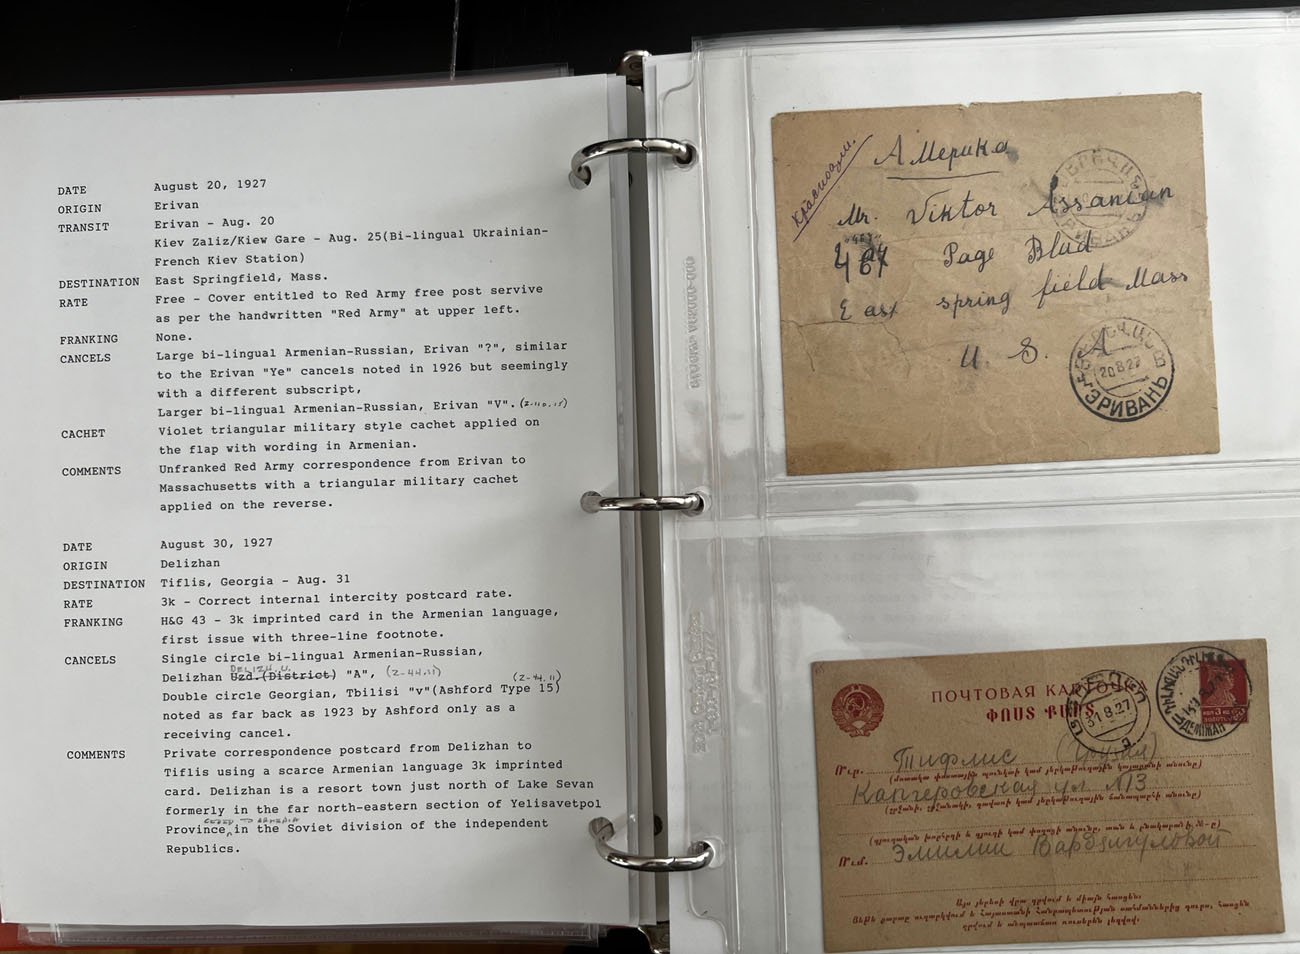 DATE August 20, 1927
ORIGIN Erivan
TRANSIT Erivan - Aug. 20
Kiev Zaliz/Kiew Gare - Aug. 25(Bi-lingual Ukrainian-
French Kiev Station)
DESTINATION East Springfield, Mass.
RATE Free - Cover entitled to Red Army free post servive
as per the handwritten "Red Army" at upper left.
FRANKING None.
CANCELS Large bi-lingual Armenian-Russian, Erivan "?", similar
to the Erivan "Ye" cancels noted in 1926 but seemingly
with a different subscript,
Larger bi-lingual Armenian-Russian, Erivan "V".
CACHET Violet triangular military style cachet applied on
the flap with wording in Armenian.
COMMENTS Unfranked Red Army correspondence from Erivan to
Massachusetts with a triangular military cachet
applied on the reverse.
DATE August 30, 1927
ORIGIN Delizhan
DESTINATION Tiflis, Georgia - Aug. 31
RATE 3k - Correct internal intercity postcard rate.
FRANKING H&G 43 - 3k imprinted card in the Armenian language,
first issue with three-line footnote.
CANCELS Single circle bi-lingual Armenian-Russian,
DELIZH. U.
Delizhan Uzd.(District) "A", (2-44.11) (2-44.11)
Double circle Georgian, Tbilisi "v"(Ashford Type 15)
noted as far back as 1923 by Ashford only as a
receiving cancel.
COMMENTS Private correspondence postcard from Delizhan to
Tiflis using a scarce Armenian language 3k imprinted
card. Delizhan is a resort town just north of Lake Sevan
formerly in the far north-eastern section of Yelisavetpol
CEDED TO ARMENIA
Province, in the Soviet division of the independent
Republics.
Америка
Mr. Viktor Assanian
467 Page Blud
East spring field Mass
U. S. A
20.8.27
ЭРИВАНЬ
ПОЧТОВАЯ КАРТОЧ
ՓՈՍՏ ՔԱՐՏ
31 8.27
ДЕЛИЖАН
Ուր. Тифлис (Грузия)
Кангеровская ул N13
Ում. Эмилии
Այս յերեսի վրա գրվում է միայն հասցեն: